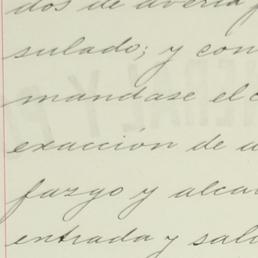 dos de avería
sulado; y con
mandase el
exacción de
fazgo y alca
entrada y sal